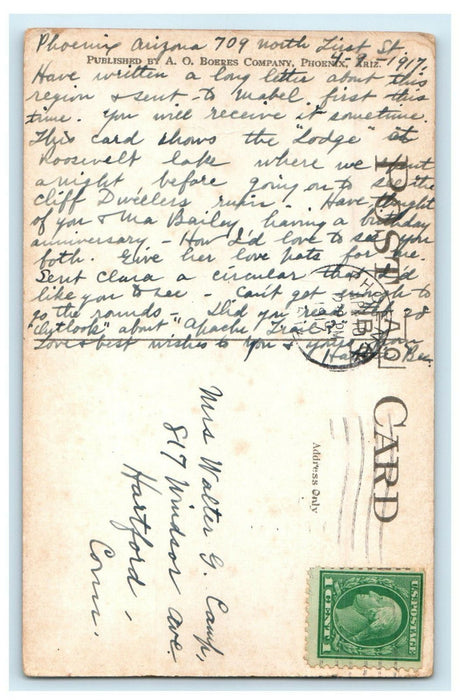 Phoenix Arizona 709 North First St.
PUBLISHED BY A. O. BOERES COMPANY, PHOENIX, ARIZ.
1917.
Have written a long letter about this
region & sent to Mabel first this
time. You will receive it sometime.
This card shows the "Lodge" at
Roosevelt lake where we spent
a night before going on to see the
cliff Dwellers ruin. Have thought
of you & Ma Bailey having a birthday
anniversary - How I'd love to see you
both. Give her love pats for me.
Sent Clara a circular that I'd
like you to see - Can't get enough to
go the rounds - Did you read
"Outlook" about "Apache Trail"?
Love & best wishes to you &
POST CARD
Address Only
Mrs Walter G. Camp,
817 Windsor Ave.
Hartford,
Conn.
U.S. POSTAGE
1 CENT 1